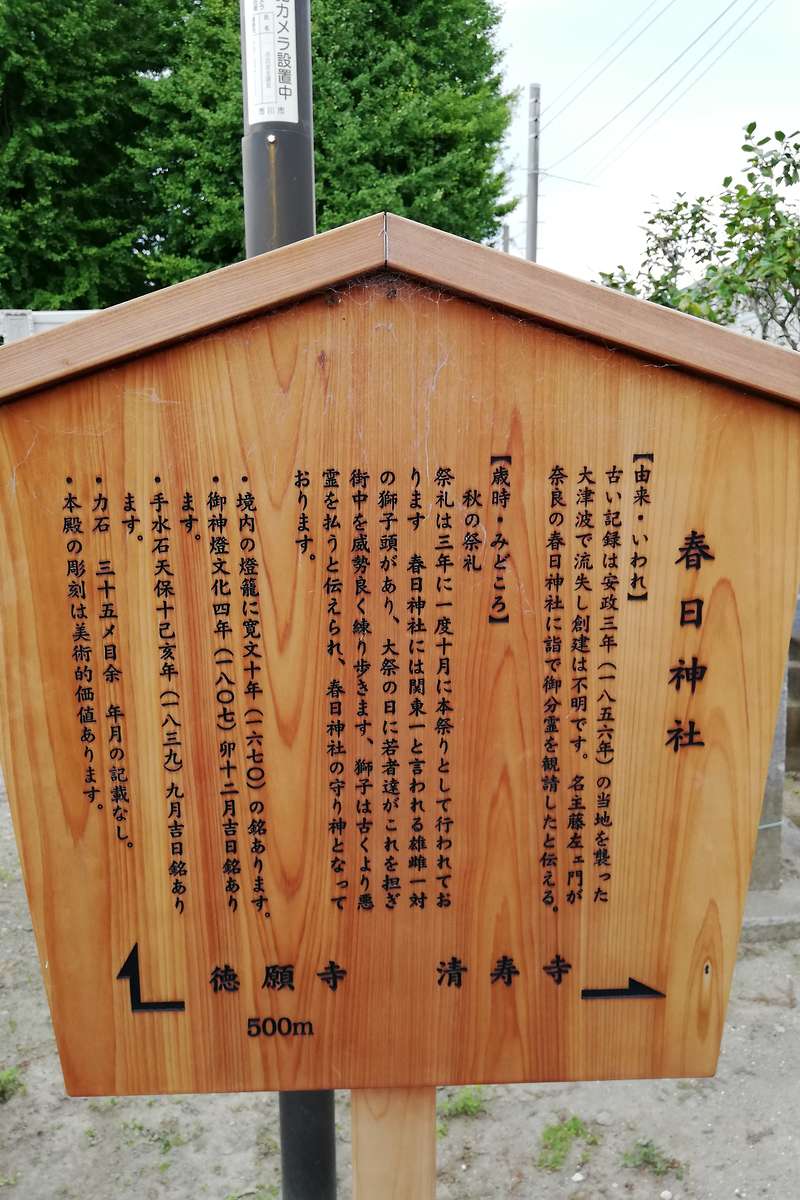 カメラ設置中
市川市
春日神社
【由来・いわれ】
古い記録は安政三年(一八五六年)の当地を襲った
大津波で流失し創建は不明です。名主藤左ェ門が
奈良の春日神社に詣で御分霊を観請したと伝える。
【歳時・みどころ】
秋の祭礼
祭礼は三年に一度十月に本祭りとして行われてお
ります 春日神社には関東一と言われる雄雌一対
の獅子頭があり、大祭の日に若者達がこれを担ぎ
街中を威勢良く練り歩きます、獅子は古くより悪
霊を払うと伝えられ、春日神社の守り神となって
おります。
・境内の燈籠に寛文十年(一六七〇)の銘あります。
・御神燈文化四年(一八〇七)卯十二月吉日銘あり
ます。
・手水石天保十己亥年(一八三九)九月吉日銘あり
ます。
・力石 三十五メ目余 年月の記載なし。
・本殿の彫刻は美術的価値あります。
徳願寺
500m
清寿寺